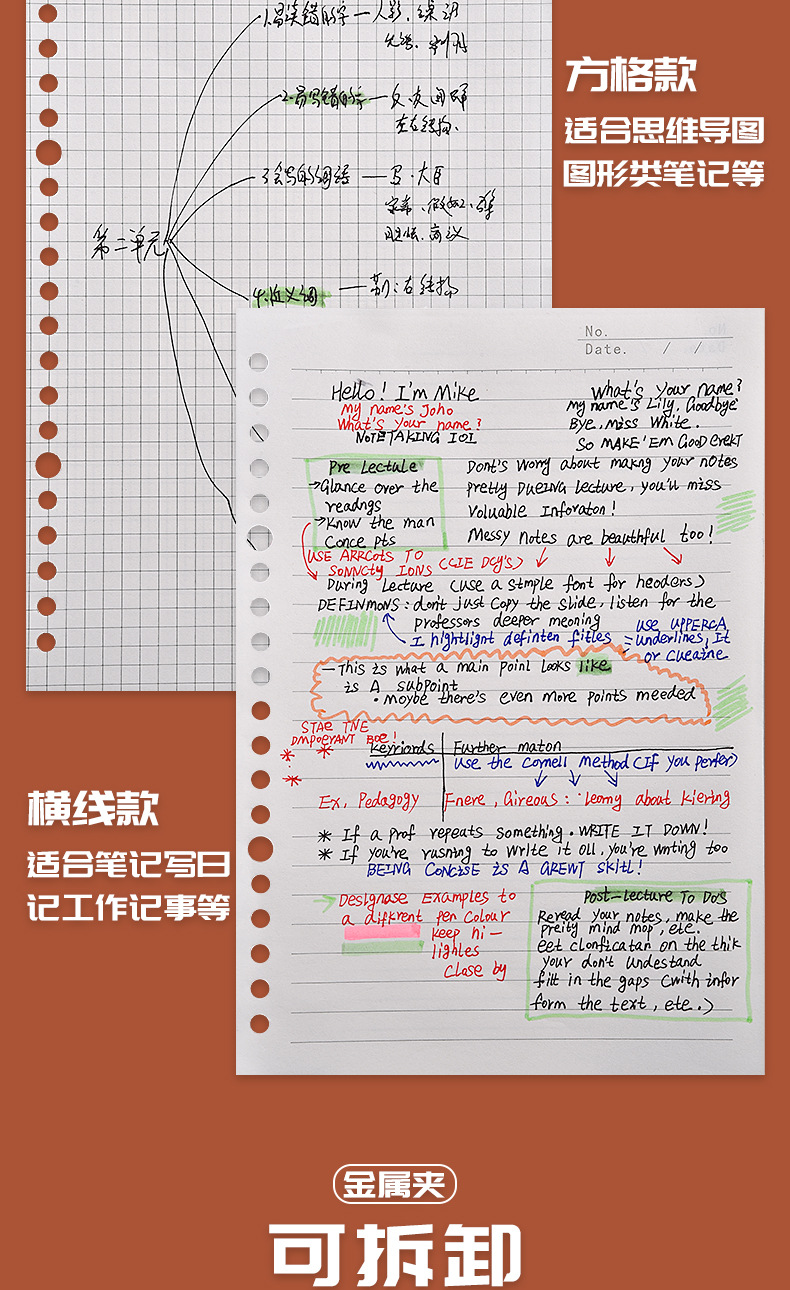 方格款
适合思维导图
图形类笔记等
1.易读错的字一人影.
2.易写错的字
左右结构.
3会写的词语
第二单元
4.近义词
No.
Date. / /
Hello! I'm Mike
What's your name?
My name's Joho
My name's Lily, Goodbye
What's your name?
Bye, Miss White.
NOTETAKING IOI
SO MAKE'EM GOOD EREKT
Pre Lectule
→Glance over the
readngs
→Know the man
Conce pts
Dont's Worry about makng your notes
pretty DUEING Lecture, you'll miss
Valuable Inforaton!
Messy notes are beautiful too!
USE ARRCOTS TO
SONNCTY IONS (CIE DCY'S)
During Lecture (use a stmple font for headers)
DEFINMONS: don't just copy the slide, listen for the
professors deeper meoning
I hightlight definten fitles
= use UPPERCA,
underlines, It
or Cueaine
—This is what a main poinl looks like
is A subpoint
• Moybe there's even more points meeded
STAE TNE
DMPOERANT BOE!
* * *
Keyriords
Further maton
use the cornell method (If you perfer)
Ex, Pedagogy
Enere, Gireous: leorng about kiering
* If a prof repeats something. WRITE IT DOWN!
* If you're rusning to write it oll, you're wnting too
BEING CONCISE IS A GREWT SKITL!
→ Designase Examples to
a difkrent pen colour
keep hi—
lighles
Close by
Post-Lecture To Dos
Reread your notes, make the
preity mind mop, etc.
eet clonficatan on the thik
your don't undestand
fitt in the gaps (with infor
form the text, ete.)
横线款
适合笔记写日
记工作记事等
金属夹
可拆卸